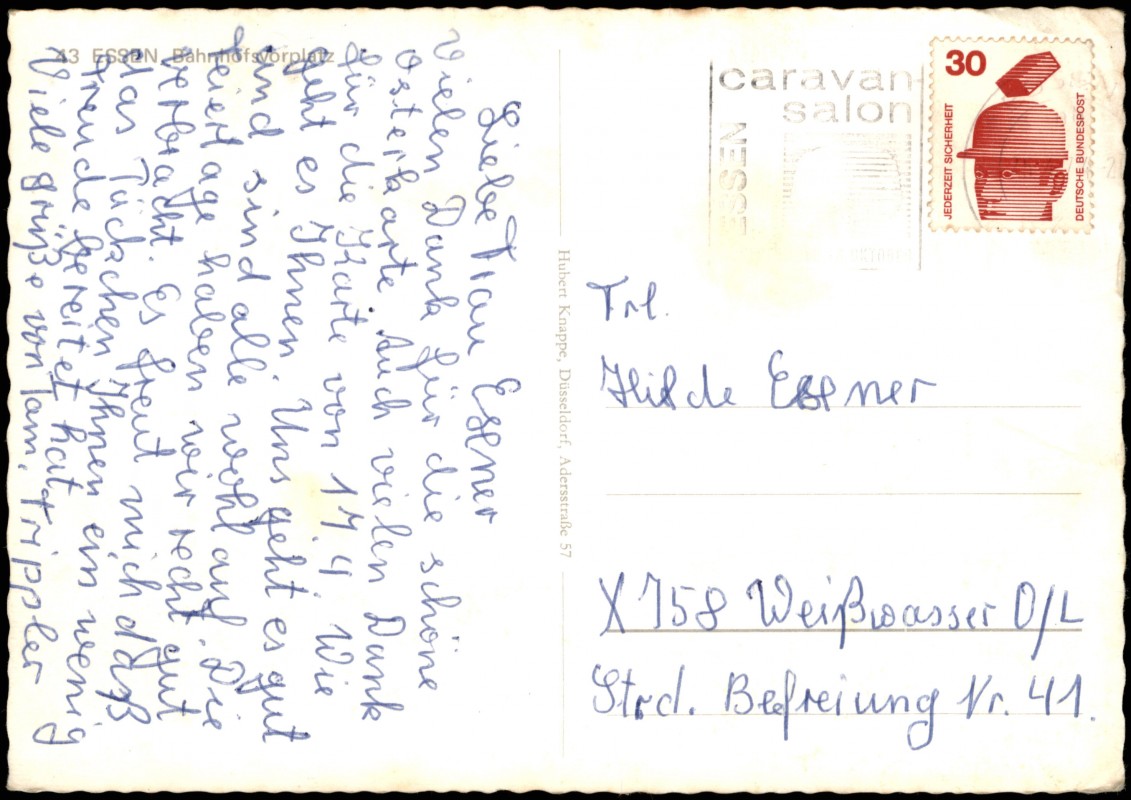 43 ESSEN, Bahnhofsvorplatz
Liebe Frau Essner
Vielen Dank für die schöne
Osterkarte. Auch vielen Dank
für die Karte von 17.4. Wie
geht es Ihnen. Uns geht es gut
und sind alle wohlauf. Die
Feiertage haben wir recht gut
verbracht. Es freut mich daß
das Tüchchen Ihnen ein wenig
Freude bereitet hat.
Viele Grüße von Fam. Trippler
Hubert Knappe, Düsseldorf, Adersstraße 57
caravan
salon
ESSEN
30
JEDERZEIT SICHERHEIT
DEUTSCHE BUNDESPOST
Frl.
Hilde Essner
X 758 Weißwasser O/L
Strd. Befreiung Nr. 41.